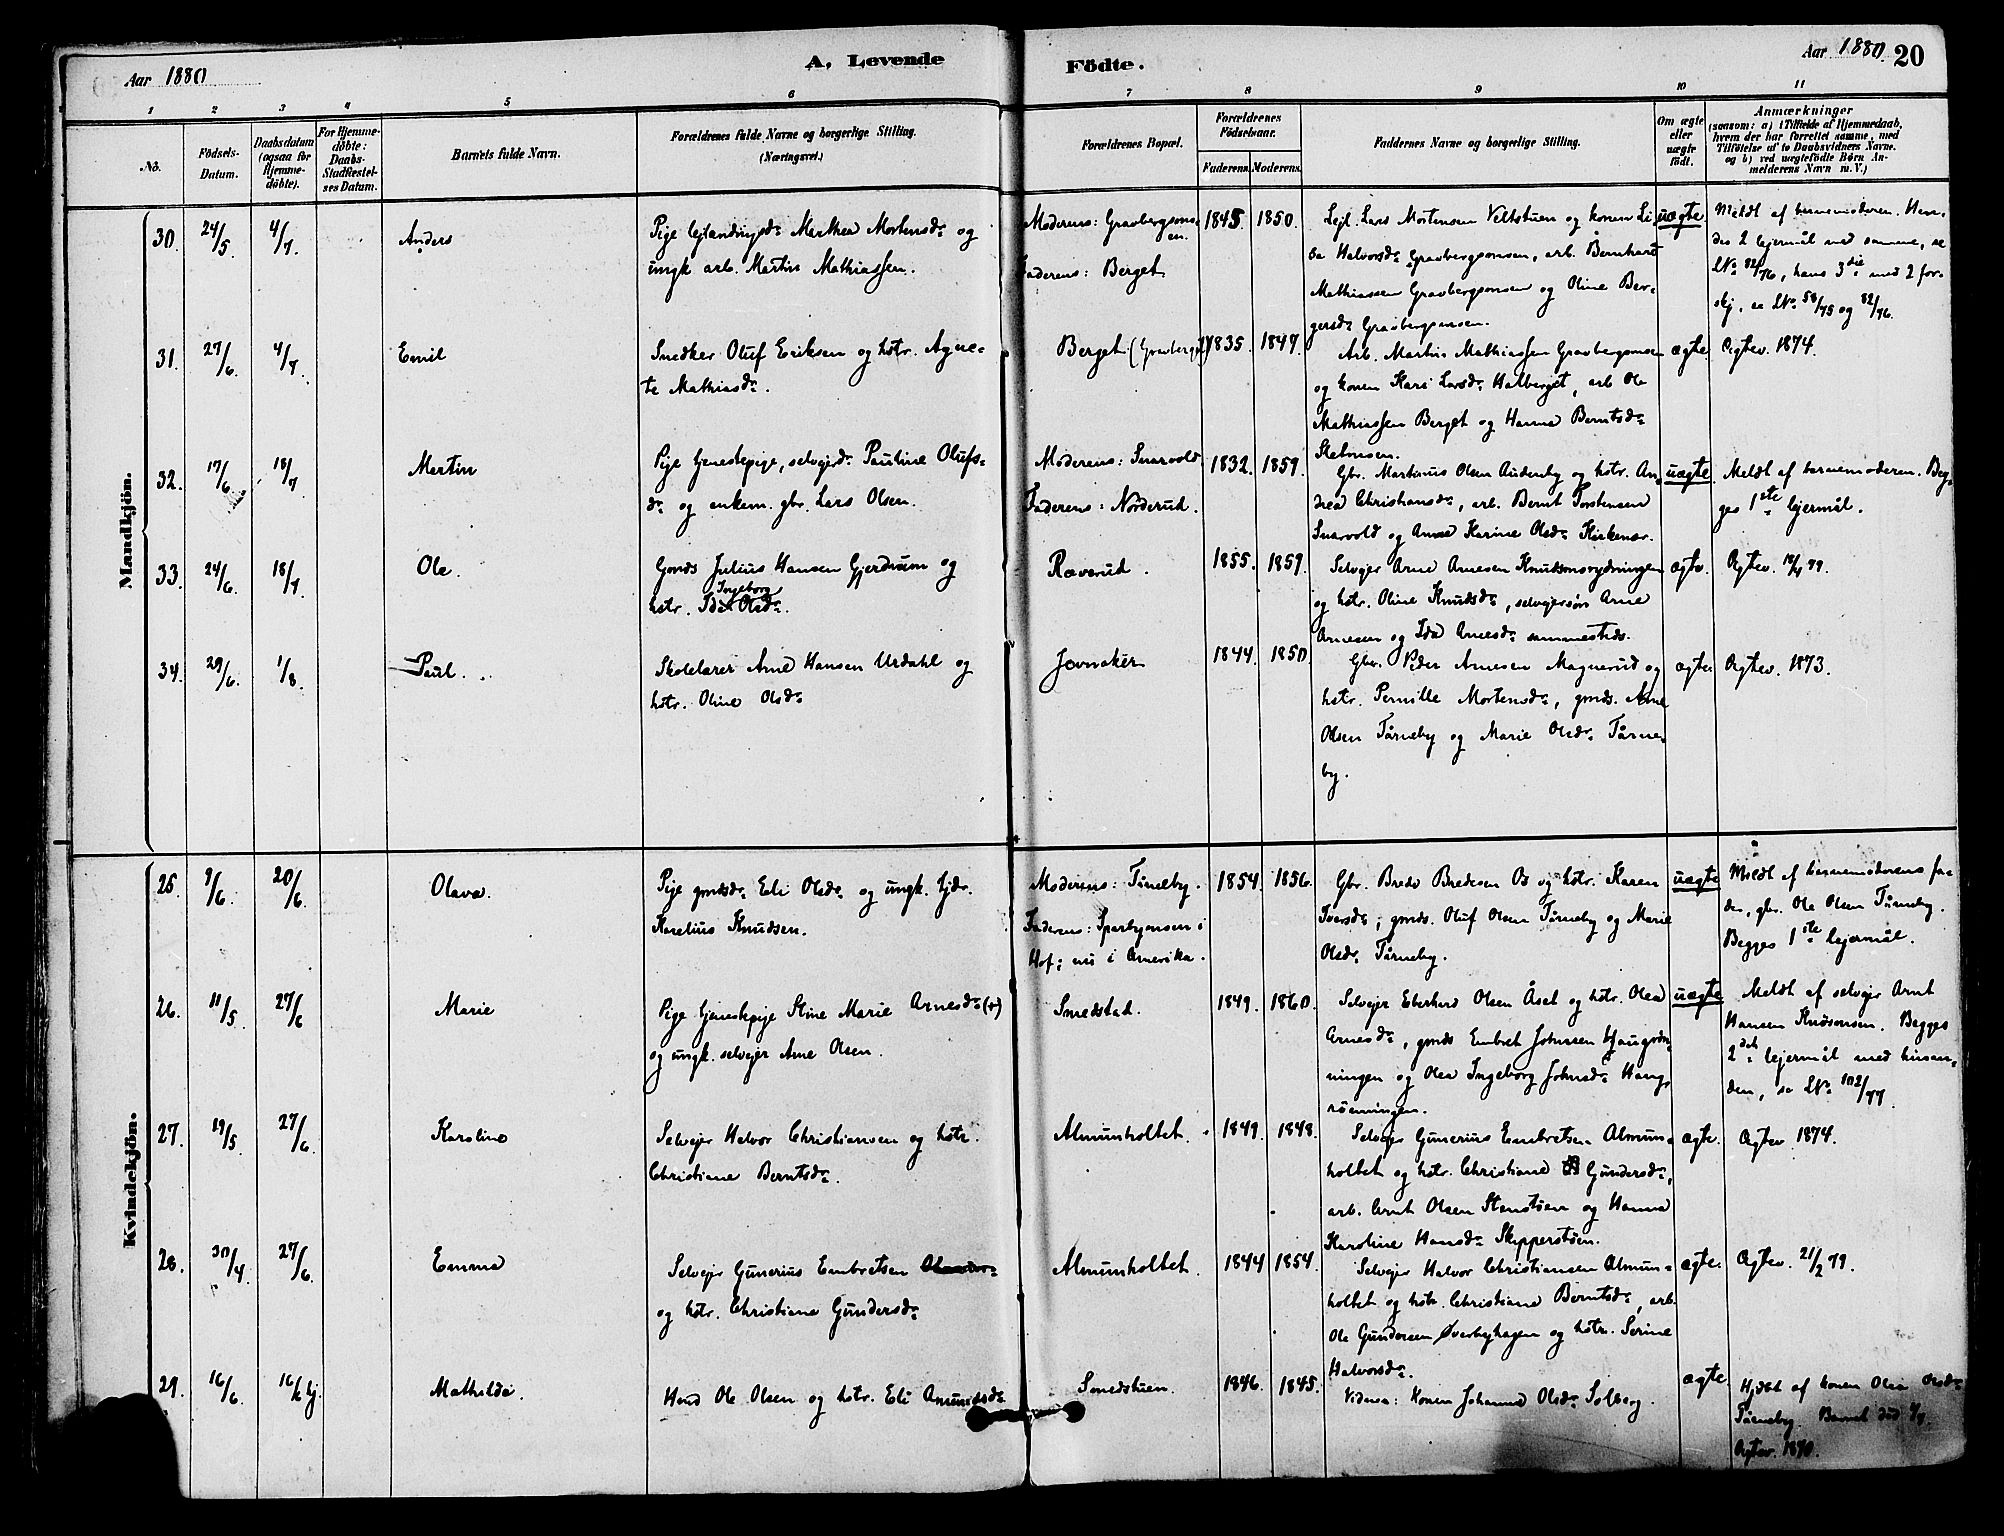 Aar 1880
A. Levende
Födte.
Aar 1880. 20
1 2 3 4 5 6 7 8 9 10 11
No.
Födsels-
Datum.
Daabsdatum
(ogsaa for
Hjemme-
döbte).
For Hjemme-
döbte:
Daabs-
Stadfæstel-
ses Datum.
Barnets fulde Navn.
Forældrenes fulde Navne og borgerlige Stilling.
(Næringsvei.)
Forældrenes Bopæl.
Forældrenes
Födselsaar.
Faderens. Moderens.
Faddernes Navne og borgerlige Stilling.
Om ægte
eller
uægte
födt.
Anmærkninger
(saasom: a) i Tilfælde af Hjemmedaab,
hvem der har forrettet samme, med
Tilföielse af to Daabsvidners Navne,
og b) ved uægtefödte Börn An-
melderens Navn m. V.)
Mandkjön.
30. 24/5 4/7. Anders
Pige Martha Mortensd. og
ungk. arb. Martin Mathiassen.
Moderens: Gravbergsmo-
en.
Faderens: Berget
1845. 1850.
Lars Mortensen Veltstuen og konen Li-
sa Halvorsd. Gravbergsmoen, arb. Bernhard
Mathiassen Gravbergsmoen og Oline Ber-
gersd. Gravbergsmoen.
uægte
Meldt af barnemoderen. Hen-
des 2 lejermål med samme, se
LNo. 82/76, hans 3die med 2 for-
skj, se LNo. 58/75 og 82/76.
31. 27/6 4/7. Emil
Snedker Oluf Eriksen og hstr. Agne-
te Mathiasd.
Berget (Gravberget)
1835. 1847.
Arb. Martius Mathiassen Gravbergsmoen
og konen Kari Larsd. Halberget, arb Ole
Mathiassen Berget og Hanna Berntsd.
ægte
Ægtev. 1874.
32. 17/6 18/7 Martin
Pige tjenestepige, selvejerd. Pauline Olufs-
d. og enkem. gbr. Lars Olsen.
Moderens: Snarvold
Faderens: Norderud.
1832. 1859.
Gbr. Martinus Olsen Audenby og hstr. An-
drea Christiansd., arb. Bernt Torstensen
Snarvold og Anne Karine Olsd. Kirkenær.
uægte.
Meldt af barnemoderen. Beg-
ges 1ste lejermål.
33. 24/6 18/7 Ole.
Gmds Julius Hansen Gjerdrum og
hstr. Ingeborg Olsd.
Ræverud.
1855. 1859.
Selvejer Arne Arnesen Knutsmosrydningen
og hstr. Oline Knudsd., selvejersön Arne
Arnesen og Ida Arnesd. sammesteds.
ægte.
34. 29/6. 1/8. Paul.
Skolelærer Arne Hansen Urdahl og
hstr. Oline Olsd.
Jovnaker
1844. 1850.
Gbr. Peder Arnesen Magnerud og
hstr. Pernille Mortensd., gmds. Arne
Olsen Tårneby og Marie Olsdr. Tårne-
by.
ægte.
Ægtev. 1873.
Kvindekjön.
25. 9/6. 20/6. Olava.
Pige gmdsd. Eli Olsd. og ungk.
Karelius Knudsen.
Moderens: Tårneby.
Faderens: Sparbymoen i
Hof; nu i Amerika.
1854. 1856.
Gbr. Brede Bredesen Os og hstr. Karen
Iversd.; gmds. Oluf Olsen Tårneby og Marie
Olsd. Tårneby.
uægte
Meldt af barnemoderens fa-
der, gbr. Ole Olsen Tårneby.
Begges 1ste lejermål.
26. 11/5 27/6 Marie
Pige tjenestepige Stine Marie Arnesd. (+)
og ungk. selvejer Arne Olsen.
Smedstad.
1849. 1860.
Selvejer Eberhard Olsen Åset og hstr. Olea
Arnesd., gmds Embret Johnsen
ningen og Olea Ingeborg Johnsd. Haug-
röenningen.
uægte
Meldt af selvejer Arnt
Hansen Knösmoen. Begges
2det lejermål med hinan-
den, se LNo. 102/77.
27. 19/5 27/6. Karoline
Selvejer Halvor Christiansen og hstr.
Christiane Berntsd.
Almunholtet.
1849. 1848.
Selvejer Gunerius Embretsen Almun-
holtet og hstr. Christiane Gundersd.,
arb. Arnt Olsen Stenstöen og Hanna
Karoline Hansd. Skipperstöen.
ægte.
Ægtev 1874.
28. 30/4 27/6. Emma
Selvejer Gunerius Embretsen
og hstr. Christiane Gundersd.
Almunholtet.
1844 1854.
Selvejer Halvor Christiansen Almun-
holtet og hstr. Christiane Berntsd., arb.
Ole Gundersen Øverbyhagen og hstr. Serine
Halvorsd.
ægte.
Ægtev. 21/2 79.
29. 16/6 16/6 hj. Mathilde.
Hmd Ole Olsen og hstr. Eli Amundsd.
Smedstuen.
1846. 1845.
Vidner: Konen Johanna Olsd. Solberg.
ægte.
Hjdbt af konen Olea Olsd.
Tårneby. Barnet död
Ægtev. 1870.